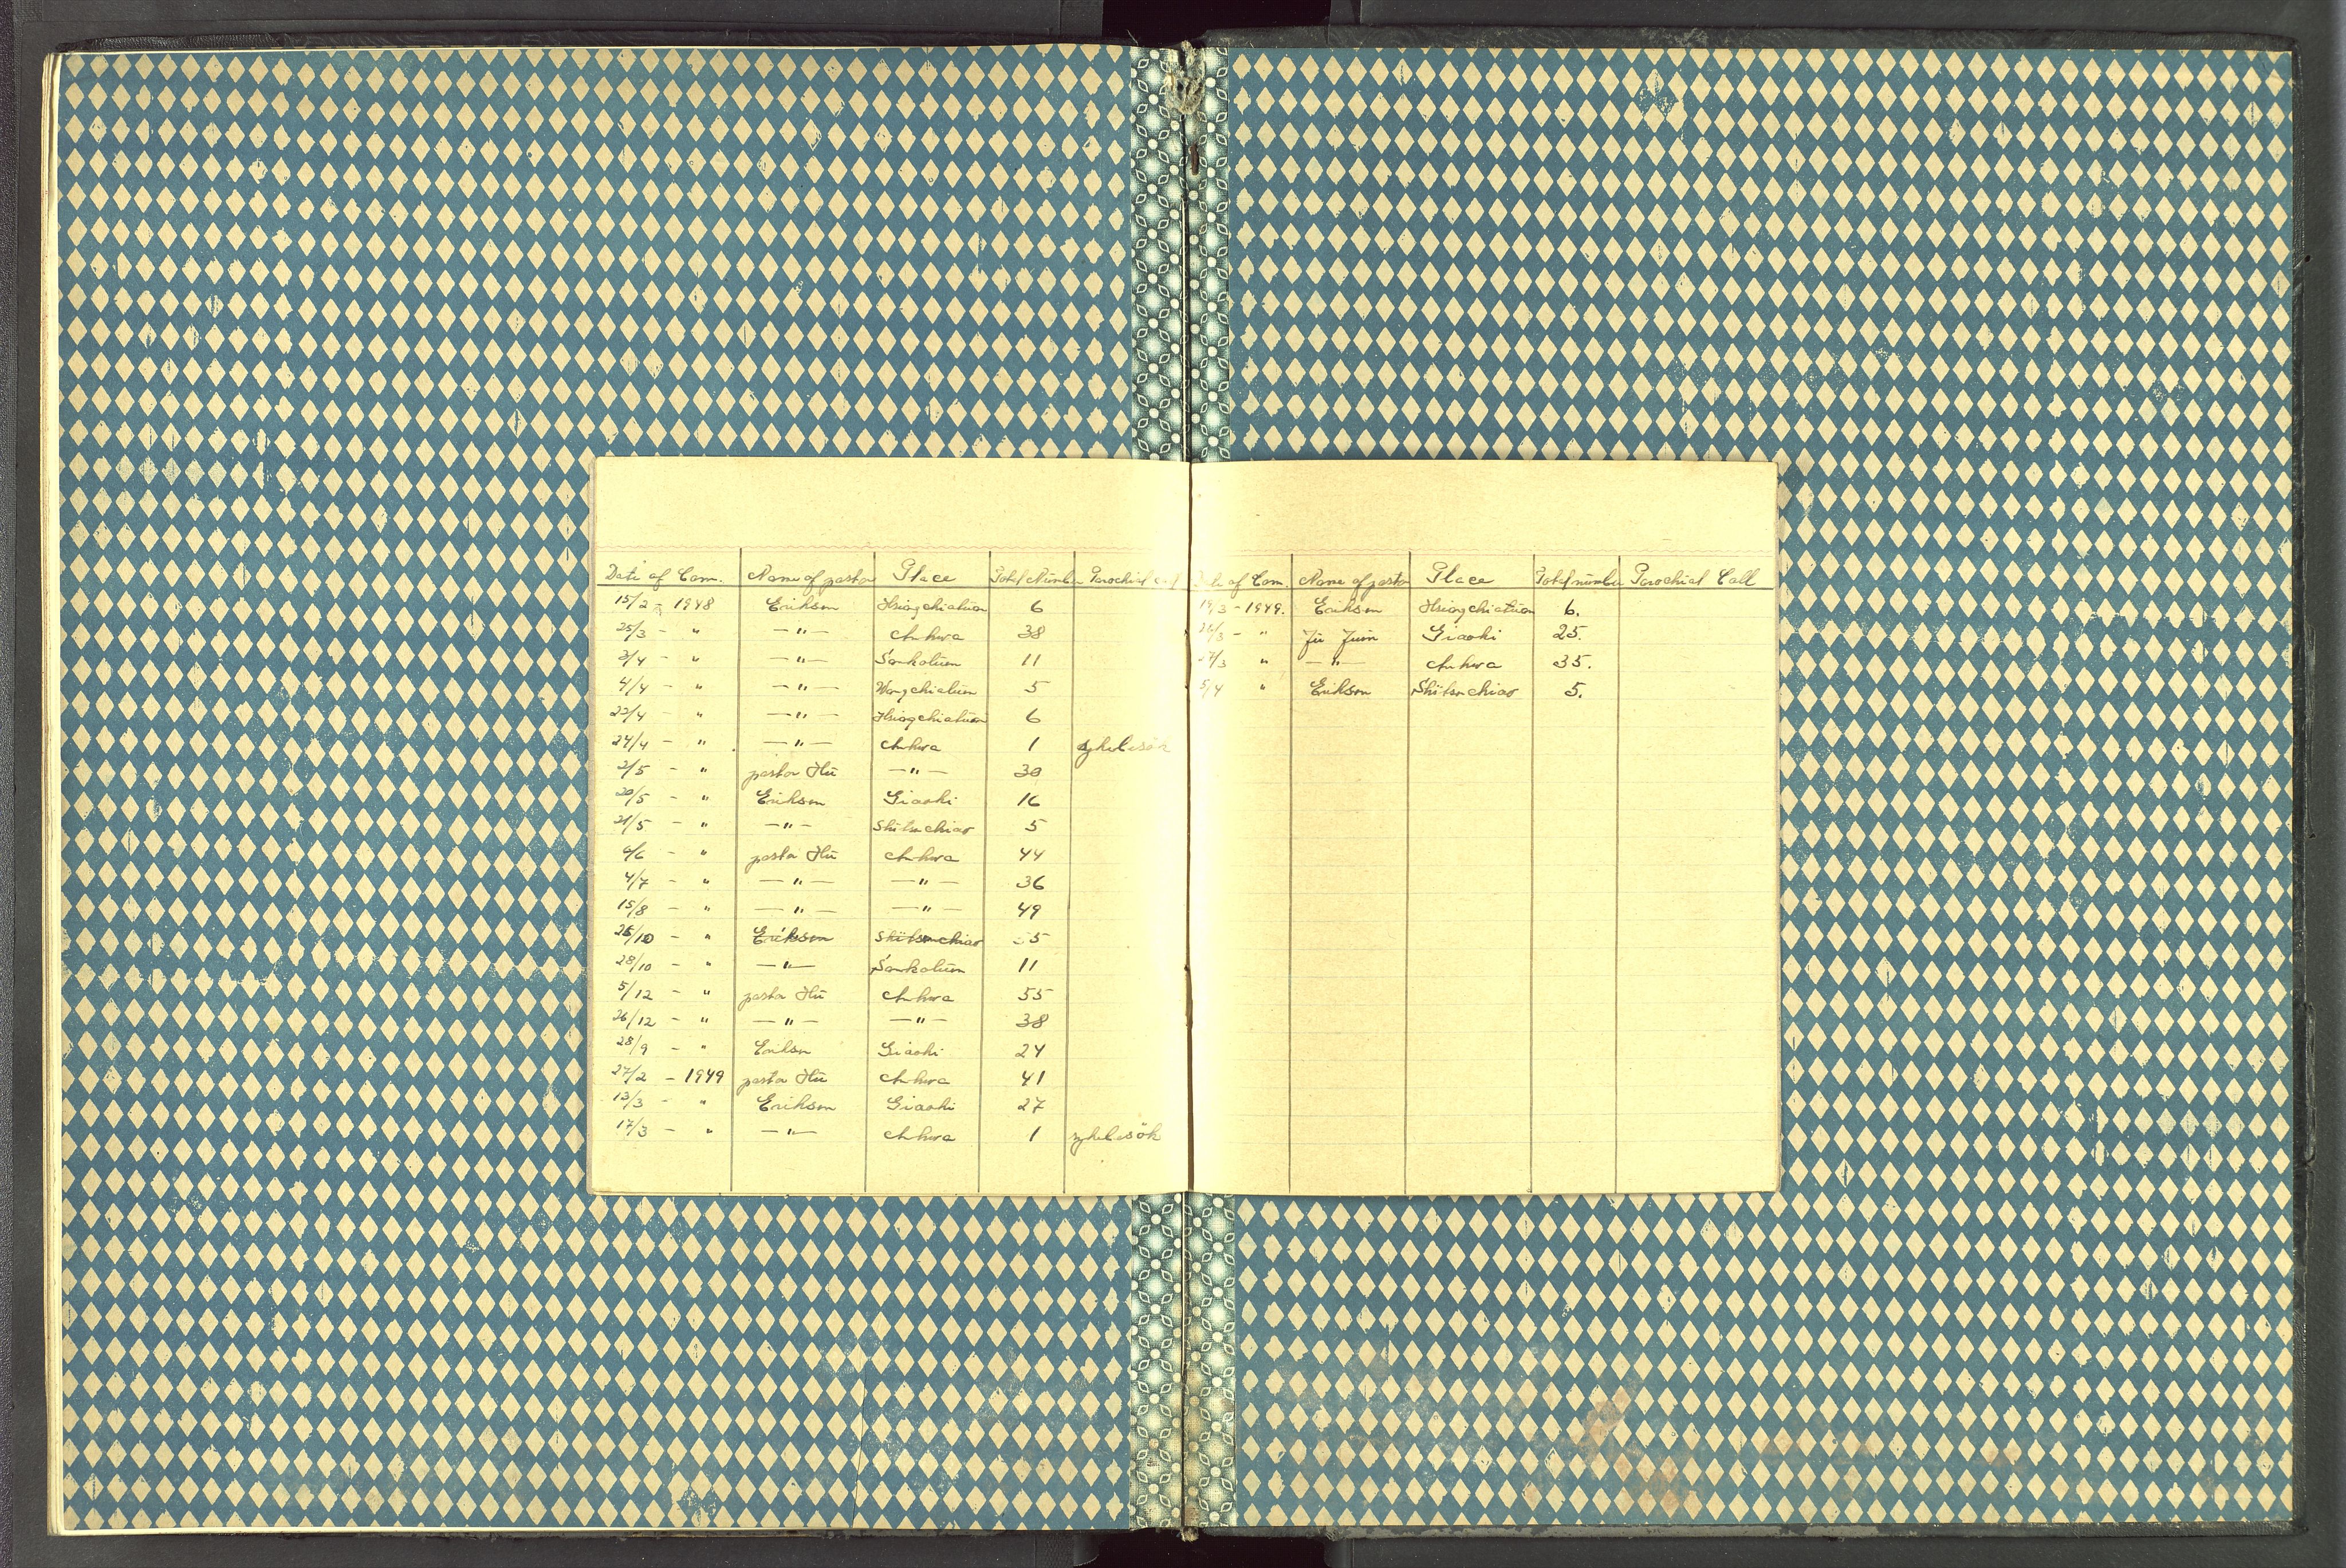 Date of Com. Name of pastor Place Total Number Parochial call
15/2 - 1948 Erikson Hsiangchiatun 6
25/3 - " — " — chuhwa 38
3/4 - " — " — Sankotun 11
4/4 - " — " — Wangchiatun 5
22/4 - " — " — Hsiangchiatun 6
24/4 - " — " — chuhwa 1 sykebesök
2/5 - " pastor Hü — " — 30
20/5 - " Erikson Giaohi 16
21/5 - " — " — Shïtsuchiao 5
6/6 - " pastor Hü chuhwa 44
4/7 - " — " — — " — 36
15/8 - " — " — — " — 49
26/10 - " Erikson Shïtsuchiao 5
28/10 - " — " — Sankotun 11
5/12 - " pastor Hü chuhwa 55
26/12 - " — " — — " — 38
28/9 - " Erikson Giaohi 24
27/2 - 1949 pastor Hü chuhwa 41
13/3 - " Erikson Giaohi 27
17/3 - " — " — chuhwa 1 sykebesök
Date of Com. Name of pastor Place Total number Parochial Call
19/3 - 1949. Erikson Hsiangchiatun 6.
26/3 - " Jü Juin Giaohi 25.
27/3 " — " — chuhwa 35.
5/4 " Erikson Shïtsuchiao 5.